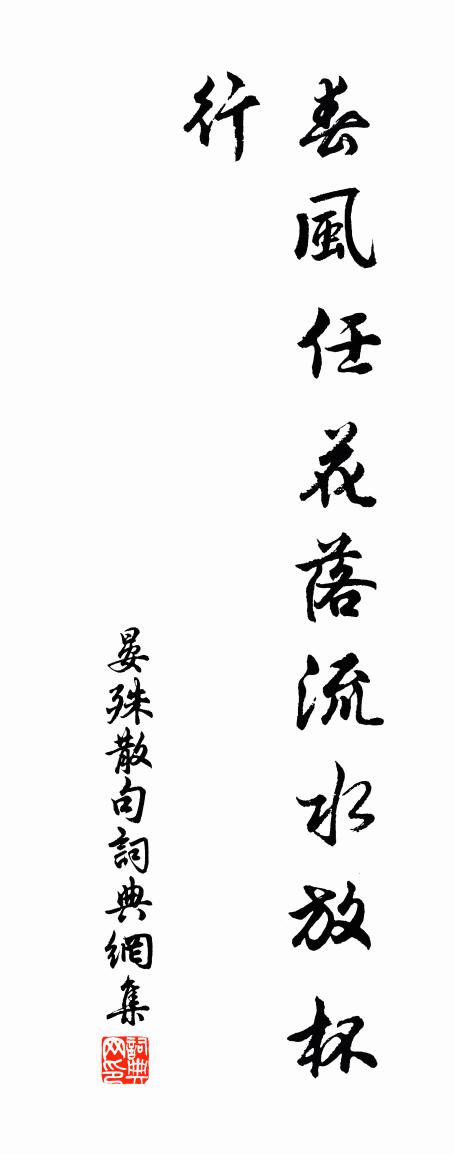 春風任花落流水放杯
行
晏殊散句詞典網集
詞典网印